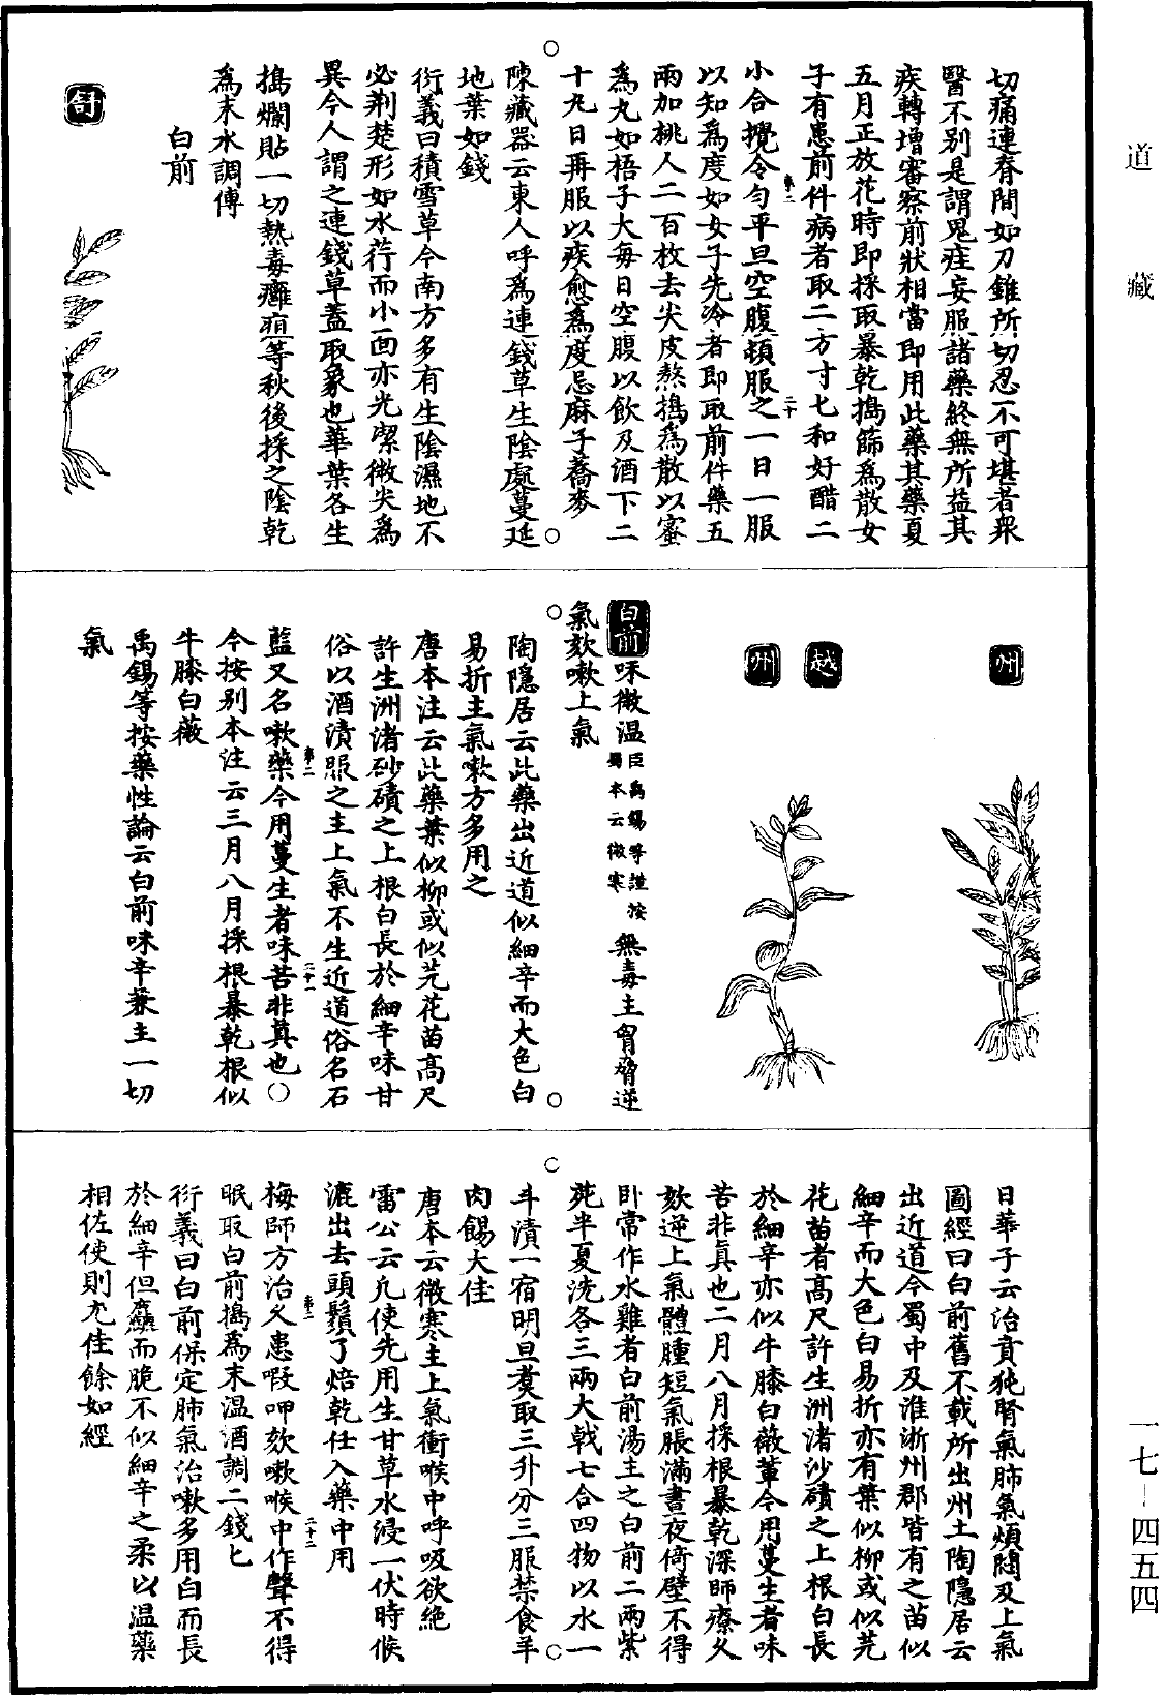 道藏
切痛連脊間如刀錐所切忍不可堪者衆
醫不別是謂鬼疰妄服諸藥終無所益其
疾轉增審察前狀相當即用此藥其藥夏
五月正放花時即採取暴乾擣篩爲散女
子有患前件病者取二方寸匕和好醋二
小合攪令勻平旦空腹頓服之一日一服
以知爲度如女子先冷者即取前件藥五
兩加桃人二百枚去尖皮熬擣爲散以蜜
爲丸如梧子大每日空腹以飲及酒下二
十丸日再服以疾愈爲度忌麻子蕎麥
陳藏器云東人呼爲連錢草生陰處蔓延
地葉如錢
衍義曰積雪草今南方多有生陰濕地不
必荆楚形如水荇而小面亦光潔微尖爲
異今人謂之連錢草蓋取象也華葉各生
擣爛貼一切熱毒癰疽等秋後採之陰乾
爲末水調傅
白前
舒
州
越
州
白前 味微温臣禹錫等謹按蜀本云微寒無毒主胷脅逆
氣欬嗽上氣
陶隱居云此藥出近道似細辛而大色白
易折主氣嗽方多用之
唐本注云此藥葉似柳或似芫花苗高尺
許生洲渚砂磧之上根白長於細辛味甘
俗以酒漬服之主上氣不生近道俗名石
藍又名嗽藥今用蔓生者味苦非真也○
今按别本注云三月八月採根暴乾根似
牛膝白薇
禹錫等按藥性論云白前味辛兼主一切
氣
日華子云治賁㹠腎氣肺氣煩悶及上氣
圖經曰白前舊不載所出州土陶隱居云
出近道今蜀中及淮浙州郡皆有之苗似
細辛而大色白易折亦有葉似柳或似芫
花苗者高尺許生洲渚沙磧之上根白長
於細辛亦似牛膝白薇輩今用蔓生者味
苦非真也二月八月採根暴乾深師療久
欬逆上氣體腫短氣脹滿晝夜倚壁不得
卧常作水雞者白前湯主之白前二兩紫
菀半夏洗各三兩大戟七合四物以水一
斗漬一宿明旦煑取三升分三服禁食羊
肉餳大佳
唐本云微寒主上氣衝喉中呼吸欲絶
雷公云凡使先用生甘草水浸一伏時候
漉出去頭鬚了焙乾任入藥中用
梅師方治久患㗋呷欬嗽喉中作聲不得
眠取白前擣爲末温酒調二錢匕
衍義曰白前保定肺氣治嗽多用白而長
於細辛但麤而脆不似細辛之柔以温藥
相佐使則尤佳餘如經
一七—四五四